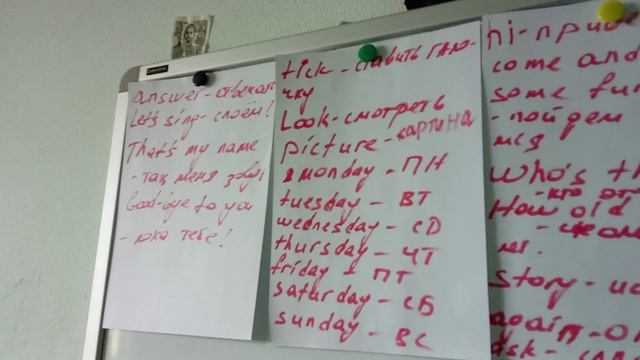 answer - отвечать
Let's sing - споём!
That's my name
- так меня зовут
Good-bye to you
- пока тебе!
tick - ставить гало-
чку
Look - смотреть
picture - картина
monday - ПН
tuesday - ВТ
wednesday - СД
thursday - ЧТ
friday - ПТ
saturday - СБ
sunday - ВС
hi - при
come and
some fu
- пойдем
мся
Who's th
- кто эт
How old
лет.
story - ис
again - о
ask -